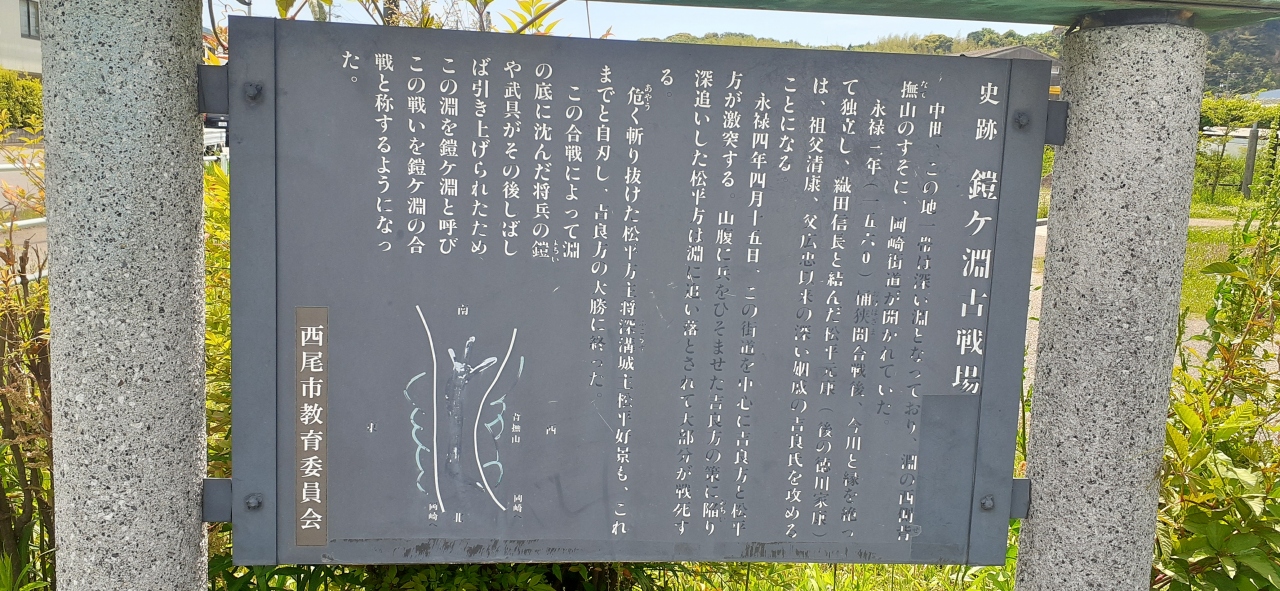 史跡 鎧ケ淵古戦場
中世、この地一帯は深い淵となっており、淵の西西吉
撫山のすそに、岡崎街道が開かれていた。
永禄三年(一五六〇)桶狭間合戦後、今川と縁を絶っ
て独立し、織田信長と結んだ松平元康(後の徳川家康)
は、祖父清康、父広忠以来の深い姻戚の吉良氏を攻める
ことになる
永禄四年四月十五日、この街道を中心に吉良方と松平
方が激突する。山腹に兵をひそませた吉良方の策に陥り
深追いした松平方は淵に追い落とされて大部分が戦死す
る。
危く斬り抜けた松平方主将深溝城主松平好景も、これ
までと自刃し、吉良方の大勝に終った。
この合戦によって淵
の底に沈んだ将兵の鎧
や武具がその後しばし
ば引き上げられたため、
この淵を鎧ケ淵と呼び
この戦いを鎧ケ淵の合
戦と称するようになっ
た。
南
西
吉撫山
岡崎へ
北
岡崎へ
西尾市教育委員会